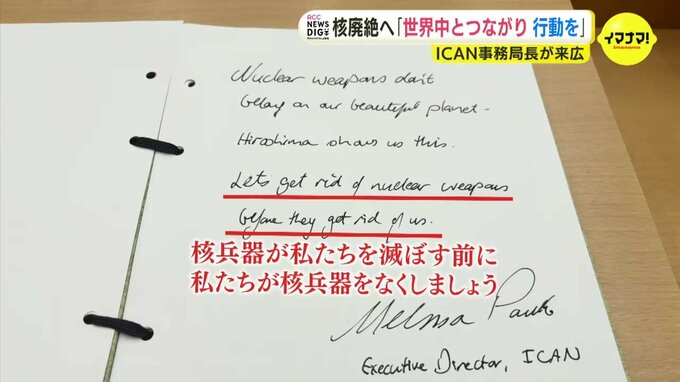 RCC
NEWS
DIG
核廃絶へ「世界中とつながり 行動を」
イマナマ!
imanama
ICAN事務局長が来広
Nuclear weapons don't
belong on our beautiful planet -
Hiroshima shows us this.
Let's get rid of nuclear weapons
before they get rid of us.
核兵器が私たちを滅ぼす前に
私たちが核兵器をなくしましょう
Melissa Parke
Executive Director, ICAN